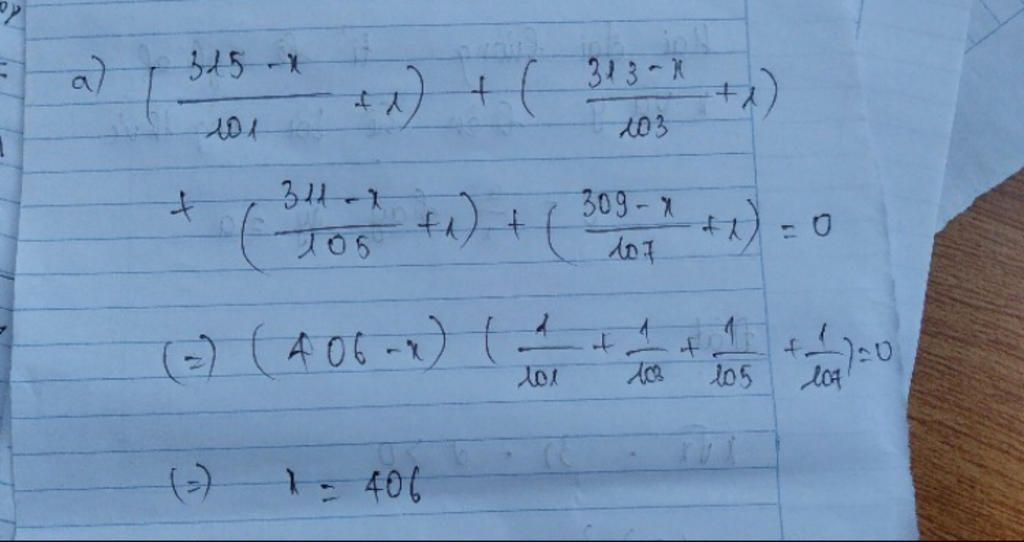 a) (315 - x / 101 + 1) + (313 - x / 103 + 1)
+ (311 - x / 105 + 1) + (309 - x / 107 + 1) = 0
(=) (406 - x) (1/101 + 1/103 + 1/105 + 1/107) = 0
(=) x = 406